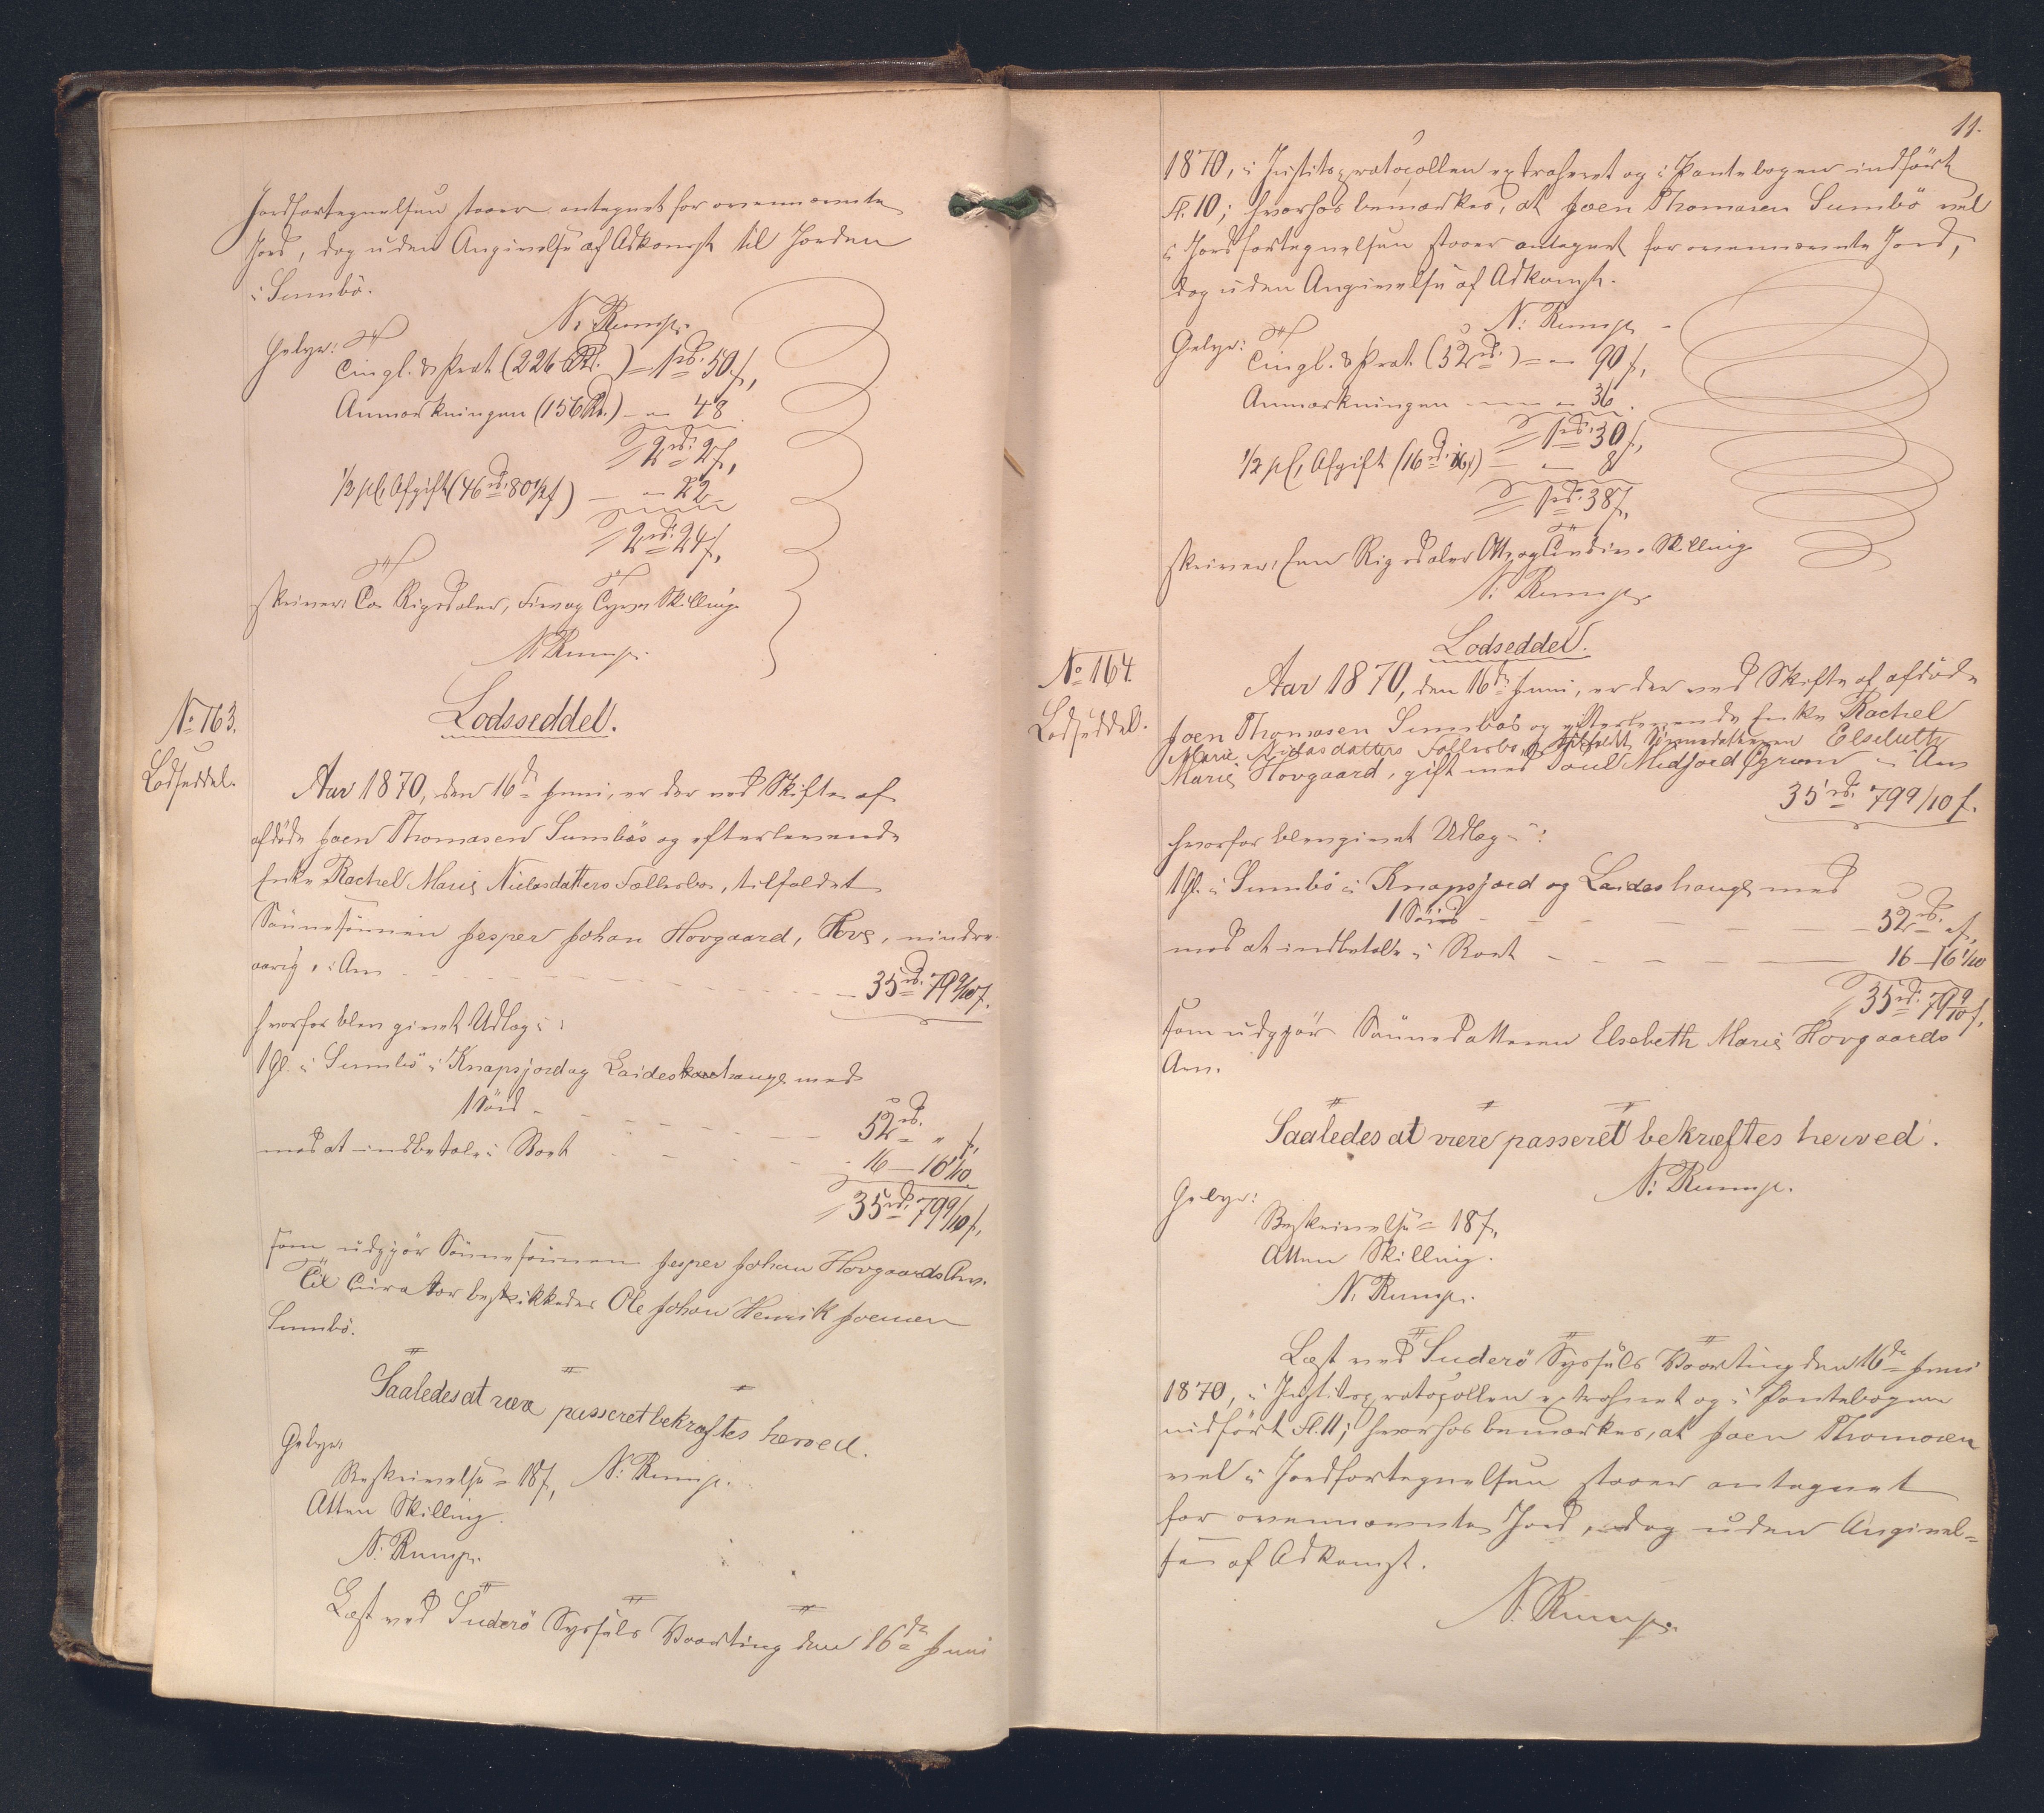 Jordfortegnelsen staaer antegnet for ovennævnte
Jord, dog uden Angivelse af Adkomst til Jorden
i Sumbö.
N. Rump.
Gebyr:
Tingl. & Prot (226 Rd.) = 1 rd. 50 s,
Anmærkningen (156 Rd.) - " 48
2 rd. 2 s,
1/2 pCt. Afgift (46 rd. 80 1/2 s) - " 22
2 rd. 24 s,
skriver: To Rigsdaler, Fire og Tyve Skilling
N. Rump.
Lodsseddel.
No 163.
Lodseddel.
Aar 1870, den 16de Juni, er der ved Skifte af
afdöde Joen Thomasen Sumbös og efterlevende
Enke Rachel Marie Niclasdatters Fællesbo, tilfaldet
Sönnesönnen Jesper Johan Hovgaard, Hove, mindre-
aarig, i Arv - 35 rd. 79 9/10 s.
hvorfor blev givet Udlæg i:
1 Gl. i Sumbö i Knapsjord og Laideshauge med
1 Söid - 52 rd. " s,
mod at indbetale i Boet - 16 - 16 1/10
35 rd. 79 9/10 s,
som udgjör Sönnesönnen Jesper Johan Hovgaards Arv.
Til Curator beskikkedes Ole Johan Henrik Joensen
Sumbö.
Saaledes at være passeret bekræftes herved.
Gebyr:
Beskrivelse = 18 s, N. Rump.
Atten Skilling.
N. Rump.
Læst ved Suderö Syssels Vaarting den 16de Juni
11.
1870, i Justitsprotocollen extraheret og i Pantebogen indfört
Fl. 10; hvorhos bemærkes, at Joen Thomasen Sumbö vel
i Jordfortegnelsen staaer antegnet for ovennævnte Jord,
dog uden Angivelse af Adkomst.
N. Rump
Gebyr:
Tingl. & Prot. (52 rd.) = " 90 s,
Anmærkningen - " 36
1 rd. 30 s,
1/2 pCt. Afgift (16 rd. 16 s) - " 8
1 rd. 38 s,
skriver: Een Rigsdaler Otte og Tredive Skilling
N. Rump.
Lodseddel.
No 164.
Lodseddel.
Aar 1870, den 16de Juni, er der ved Skifte af afdöde
Joen Thomasen Sumbös og efterlevende Enke Rachel
Marie Niclasdatters Fællesbo, tilfaldt Sönnedatteren Elsebeth
Marie Hovgaard, gift med Poul Midfjord i Arv
35 rd. 79 9/10 s.
hvorfor blev givet Udlæg i:
1 Gl. i Sumbö i Knapsjord og Laideshauge med
1 Söid - 52 rd. " s,
mod at indbetale i Boet - 16 - 16 1/10
35 rd. 79 9/10 s,
som udgjör Sönnedatteren Elsebeth Marie Hovgaards
Arv.
Saaledes at være passeret bekræftes herved.
N. Rump.
Gebyr:
Beskrivelse = 18 s,
Atten Skilling.
N. Rump.
Læst ved Suderö Syssels Vaarting den 16de Juni
1870, i Justitsprotocollen extraheret og i Pantebogen
indfört Fl. 11; hvorhos bemærkes, at Joen Thomasen
vel i Jordfortegnelsen staaer antegnet
for ovennævnte Jord, dog uden Angivel-
sen af Adkomst.
N. Rump.